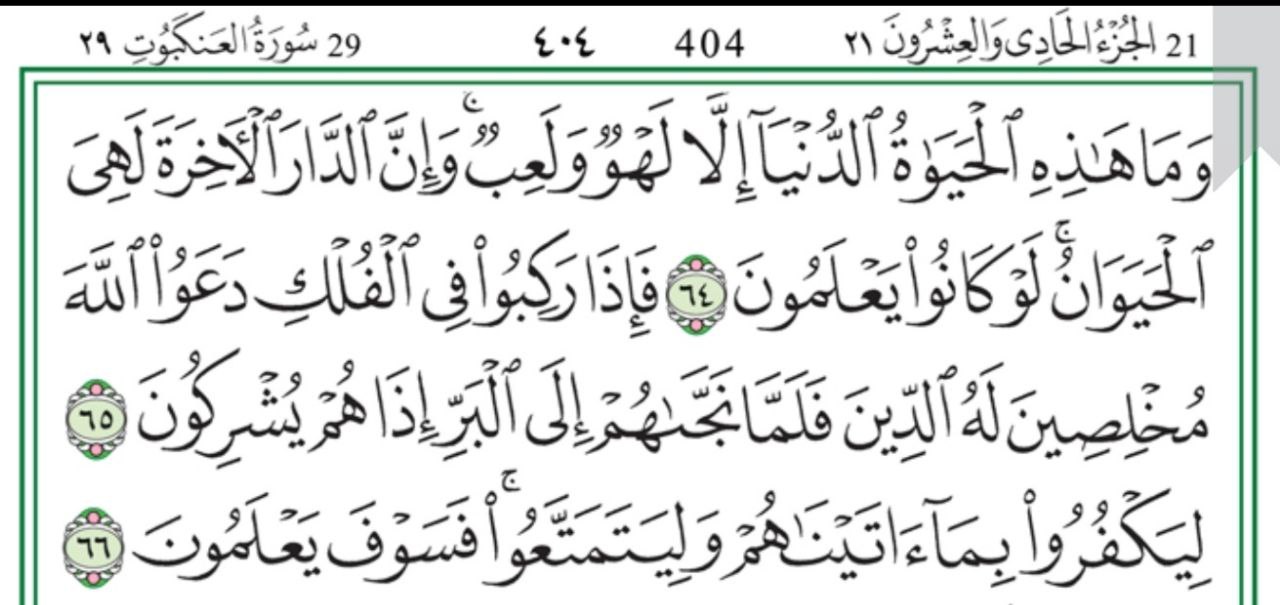 21 الجُزْءُ الحَادِى وَالعِشْرُونَ ٢١ 404 ٤٠٤ 29 سُورَةُ العَنكَبُوتِ ٢٩
وَمَا هَـٰذِهِ ٱلْحَيَوٰةُ ٱلدُّنْيَآ إِلَّا لَهْوٌ وَلَعِبٌ ۚ وَإِنَّ ٱلدَّارَ ٱلْأَخِرَةَ لَهِىَ
ٱلْحَيَوَانُ ۚ لَوْ كَانُوا۟ يَعْلَمُونَ ٦٤ فَإِذَا رَكِبُوا۟ فِى ٱلْفُلْكِ دَعَوُا۟ ٱللَّهَ
مُخْلِصِينَ لَهُ ٱلدِّينَ فَلَمَّا نَجَّىٰهُمْ إِلَى ٱلْبَرِّ إِذَا هُمْ يُشْرِكُونَ ٦٥
لِيَكْفُرُوا۟ بِمَآ ءَاتَيْنَـٰهُمْ وَلِيَتَمَتَّعُوا۟ ۚ فَسَوْفَ يَعْلَمُونَ ٦٦